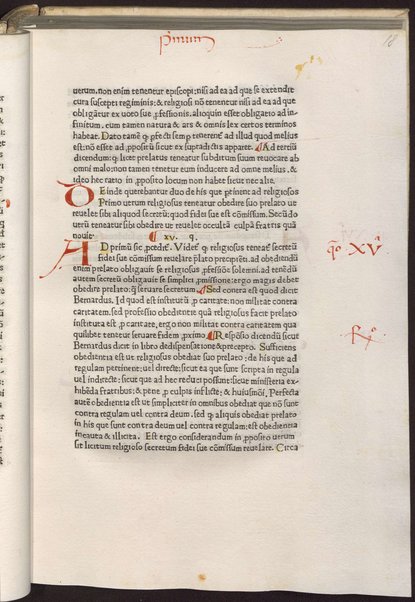 primum
18
uerum. non enim tenentur episcopi; nisi ad ea ad que se extendit
cura suscepti regiminis; & religiosi nõ tenentur nisi ad ea ad que
obligãtur ex uoto sue ꝓfessionis. alioquin esset obligatio ad in-
finitum. cum tamen natura & ars & omnis lex certos terminos
habeat. Dato tamẽ ꝙ ꝑfecti semꝑ tenerent᷑ ad illud quod melius
est: nõ esset ad ꝓpositũ sicut ex supradictis apparet. Ad terciũ
dicendum: ꝙ licet prelatus teneatur subditum suum reuocare ab
omni malo: non tamen tenetur eum inducere ad omne melius. &
ideo hec ratio in ꝓposito locum non habet sicut nec alie.
DEinde querebantur duo de his que ꝑtinent ad religiosos
Primo utrum religiosus teneatur obedire suo prelato ut
reuelet sibi aliquod secretũ: quod fidei sue est cõmissum. Secũdo
utrũ teneatur sibi obedire ut reuelet occultã culpã fratris quã
nouit. xv. q.
AD primũ sic ꝓcedit᷑. Videt᷑ ꝙ religiosus teneat᷑ secretũ
fidei sue cõmissum reuelare p̃lato precipiẽti. ad obediendũ
enim prelato obligauit se religiosus ꝓfessiõe solemni. ad tenẽdũ
autem secretũ obligauit se simplici ꝓmissione: ergo magis debet
obedire prelato: ꝙ̃ seruare secretum. Sed contra est quod dicit
Bernardus. Id quod est institutũ ꝓ caritate: non militat contra
caritatem. sed professio obedientie quã religiosus facit prelato
instituta est ꝓ caritate. ergo non militat contra caritatem qua
quilibet tenetur seruare fidem ꝓximo. Respõsio dicendũ sicut
Bernardus dicit in libro de dispensatione & precepto. Sufficiens
obedientia est ut religiosus obediat suo prelato: de his que ad
regulam pertinent: uel directe: sicut ea que sunt scripta in regula
uel indirecte: sicut que ad hec reduci possunt: sicut ministeria ex-
hibẽda fratribus: & pene ꝓ culpis inflicte: & huiusmõi. Perfecta
autẽ obedientia est ut simpliciter in omnibus obediat que nõ sunt
contra regulam uel contra deum. sed ꝙ aliquis obediat prelato
in his que sunt contra deum uel contra regulam: est obedientia
incauta & illicita. Est ergo considerandum in ꝓposito utrum
sit licitum religioso secretum fidei sue cõmissum reuelare. Circa
q̃o XVᵃ
Rº